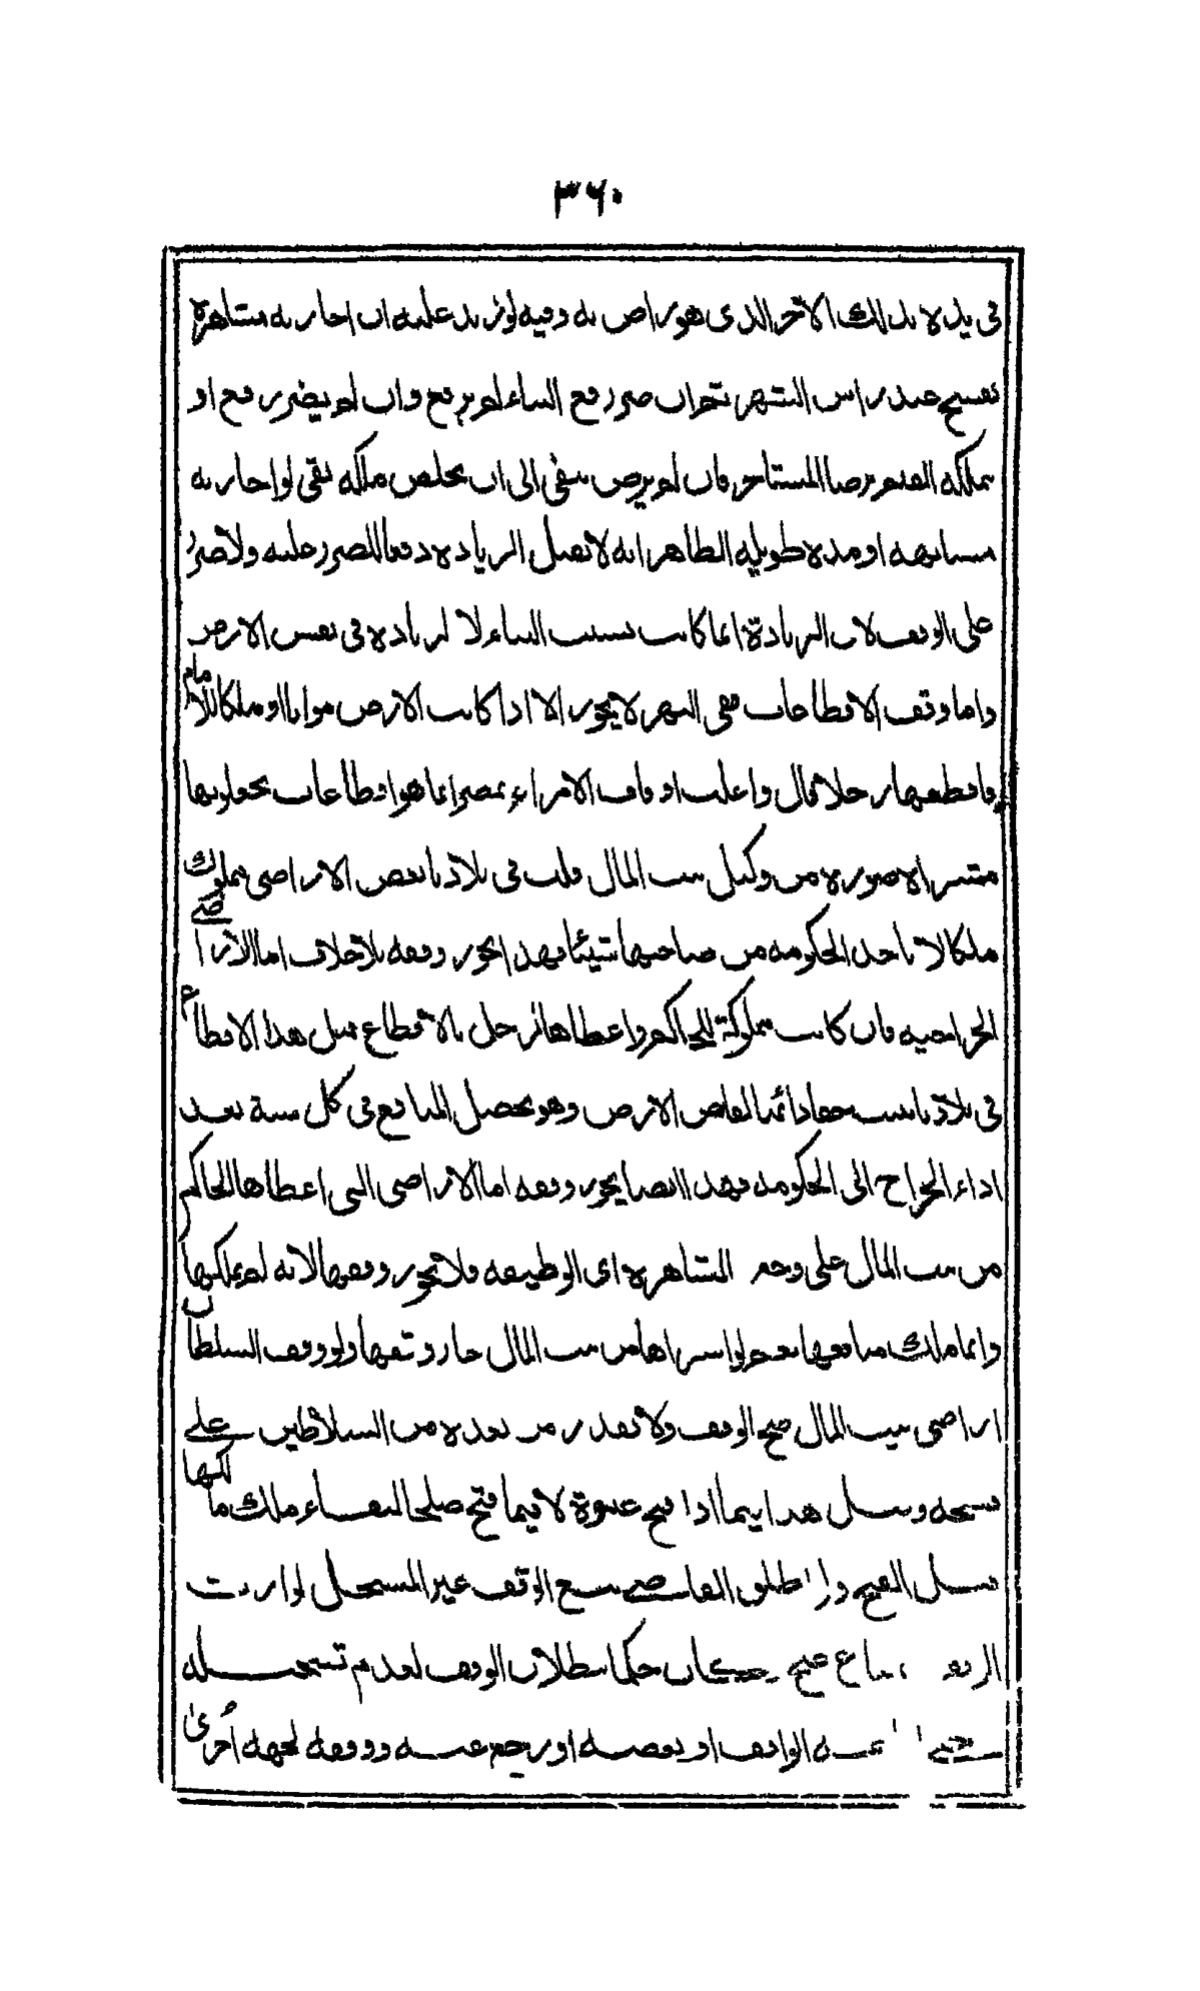 ٣٦٠
في يده لا بذلك الاجر الذي هو راض به وفيه لو زيد عليه ان اجارته مشاهرة
تفسخ عند راس الشهر ثم ان ضر رفع البناء لم يرفع وان لم يضر رفع او
يملكه القيم برضا المستاجر فان لم يرض يبقى الى ان يخلص ملكه بقى لو اجارته
مسانهة او مدة طويلة الظاهر انه لا تقبل الزيادة دفعا للضرر عليه ولا ضرر
على الوقف لان الزيادة انما كانت بسبب البناء لا لزيادة في نفس الارض
واما وقف الاقطاعات ففي النهر لا يجوز الا اذا كانت الارض مواتا او ملكا للامام
فاقطعها رجلا قال واغلب اوقاف الامراء بمصر انما هو اقطاعات يجعلونها
مشتراة صورة من وكيل بيت المال قلت في بلادنا بعض الاراضي مملوك
ملكا لا تاخذ الحكومة من صاحبها شيئا فهذا يجوز وقفه بلا خلاف اما الاراضي
الخراجية فان كانت مملوكة للحاكم واعطاها لرجل بالاقطاع مثل هذا الاقطاع
في بلادنا يثبت حقا دائما لقابض الارض وهو يحصل المنافع في كل سنة بعد
اداء الخراج الى الحكومة فهذا ايضا يجوز وقفه اما الاراضي التي اعطاها الحاكم
من بيت المال على وجه المشاهرة اي الوظيفة فلا يجوز وقفها لانه لم يملكها
وانما ملك منافعها نعم لو اشتراها من بيت المال جاز وقفها ولو وقف السلطان
اراضي بيت المال صح الوقف ولا يقدر من بعده من السلاطين على
فسخه وقيل هذا فيما اذا فتح عنوة لا فيما فتح صلحا لبقاء ملك مالكها
قبل الفتح ولو اطلق القاضي بيع الوقف غير المسجل لوارث
الواقف فباع صح كان حكما ببطلان الوقف لعدم تسجيله
الواقف او بعضه او رجع عنه ووقفه لجهة اخرى